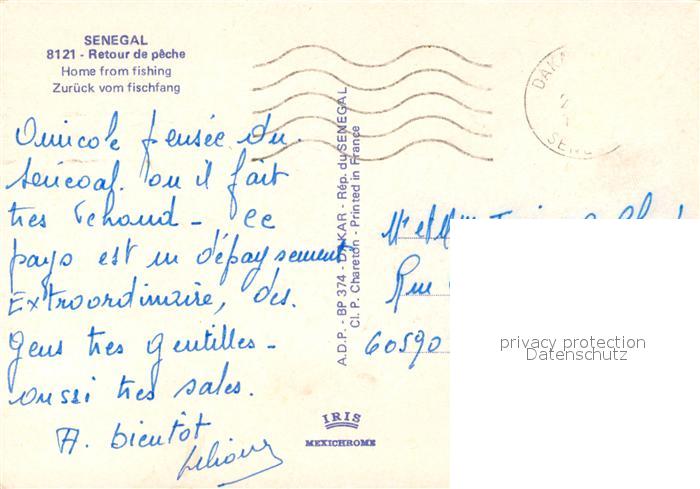 SENEGAL
8121 - Retour de pêche
Home from fishing
Zurück vom fischfang
Amicale pensée du
Sénégal. ou il fait
tres chaud - Ce
pays est un dépaysement
Extraordinaire, des.
Gens tres gentilles -
aussi tres sales.
A. bientot
A.D.P. - BP 374 - DAKAR - Rép. du SENEGAL
Cl. P. Chareton - Printed in France
DAKA
SENE
Mr et Mme
Rue
60590
privacy protection
Datenschutz
IRIS
MEXICHROME